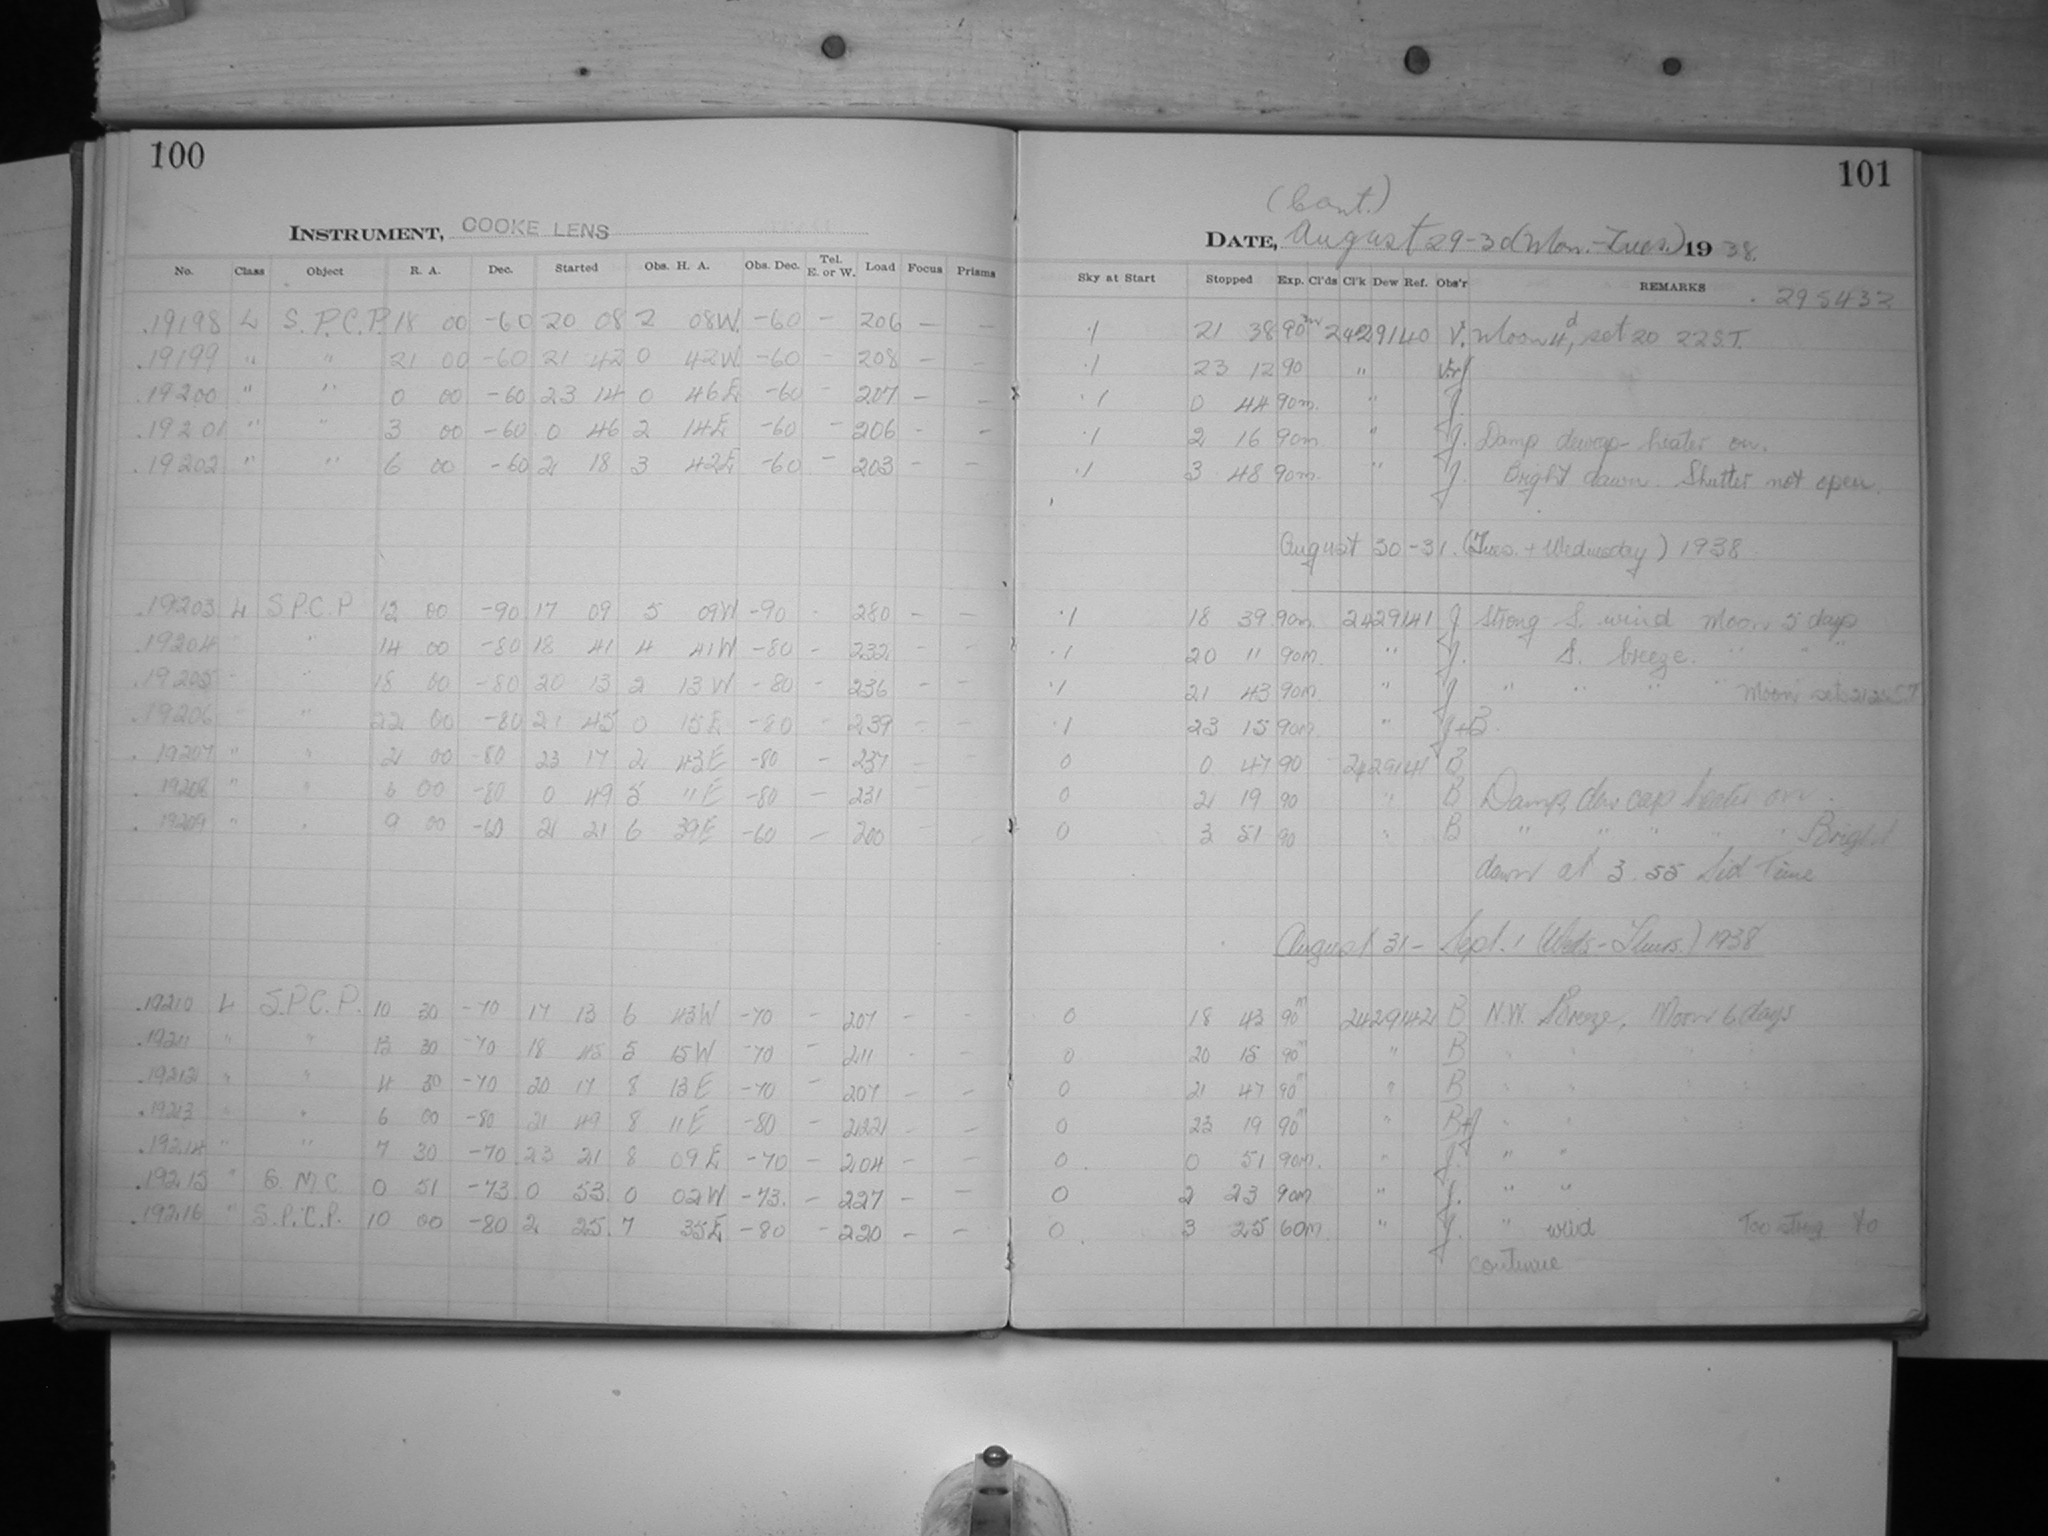 100
INSTRUMENT, COOKE LENS
No. Class Object R. A. Dec. Started Obs. H. A. Obs. Dec. Tel. E. or W. Load Focus Prisms
.19198 L S.P.C.P. 18 00 -60 20 08 2 08W. -60 - 206 - -
.19199 " " 21 00 -60 21 42 0 42W -60 - 208 - -
.19200 " " 0 00 -60 23 14 0 46E -60 - 207 - -
.19201 " " 3 00 -60 0 46 2 14E -60 - 206 - -
.19202 " " 6 00 -60 2 18 3 42E -60 - 203 - -
.19203 L S.P.C.P 12 00 -90 17 09 5 09W -90 - 280 - -
.19204 " 14 00 -80 18 41 4 41W -80 - 232 - -
.19205 " 18 00 -80 20 13 2 13W -80 - 236 - -
.19206 " 22 00 -80 21 45 0 15E -80 - 239 - -
.19207 " " 2 00 -80 23 17 2 43E -80 - 237 - -
.19208 " " 6 00 -80 0 49 5 11E -80 - 231 - -
.19209 " " 9 00 -60 2 21 6 39E -60 - 200 - -
.19210 L S.P.C.P. 10 30 -70 17 13 6 43W -70 - 207 - -
.19211 " " 13 30 -70 18 45 5 15W -70 - 211 - -
.19212 " " 4 30 -70 20 17 8 13E -70 - 207 - -
.19213 " " 6 00 -80 21 49 8 11E -80 - 222 - -
.19214 " " 7 30 -70 23 21 8 09E -70 - 204 - -
.19215 " S.M.C. 0 51 -73 0 53 0 02W -73. - 227 - -
.19216 " S.P.C.P. 10 00 -80 2 25. 7 35E -80 - 220 - -
101
(Cont.)
DATE, August 29-30 (Mon.-Tues.) 1938.
Sky at Start Stopped Exp. Cl'ds Cl'k Dew Ref. Obs'r REMARKS
295432
.1 21 38 90m 2429140 V. Moon 4d, set 20 22 S.T.
.1 23 12 90 "
.1 0 44 90m. " J.
.1 2 16 90m " J. Damp dewcap-heater on.
.1 3 48 90m. " J. Bright dawn. Shutter not open.
August 30-31. (Tues. + Wednesday) 1938
.1 18 39 90m 2429141 J Strong S. wind Moon 5 days
.1 20 11 90m. " J. S. breeze. " " "
.1 21 43 90m " J " " " " Moon sets
.1 23 15 90m " J+B.
0 0 47 90 2429141 B
0 2 19 90 " B Damp, dew cap heater on.
0 3 51 90 " B " " " " " Bright
dawn at 3.55 Sid Time
August 31- Sept. 1 (Weds-Thurs.) 1938
0 18 43 90m 2429142 B N.W. Breeze, Moon 6 days
0 20 15 90m " B " " " "
0 21 47 90m " B " "
0 23 19 90m " B+J " "
0 0 51 90m. " J. " "
0 2 23 90m " J. " "
0 3 25 60m. " J. " wind Too strong to
continue